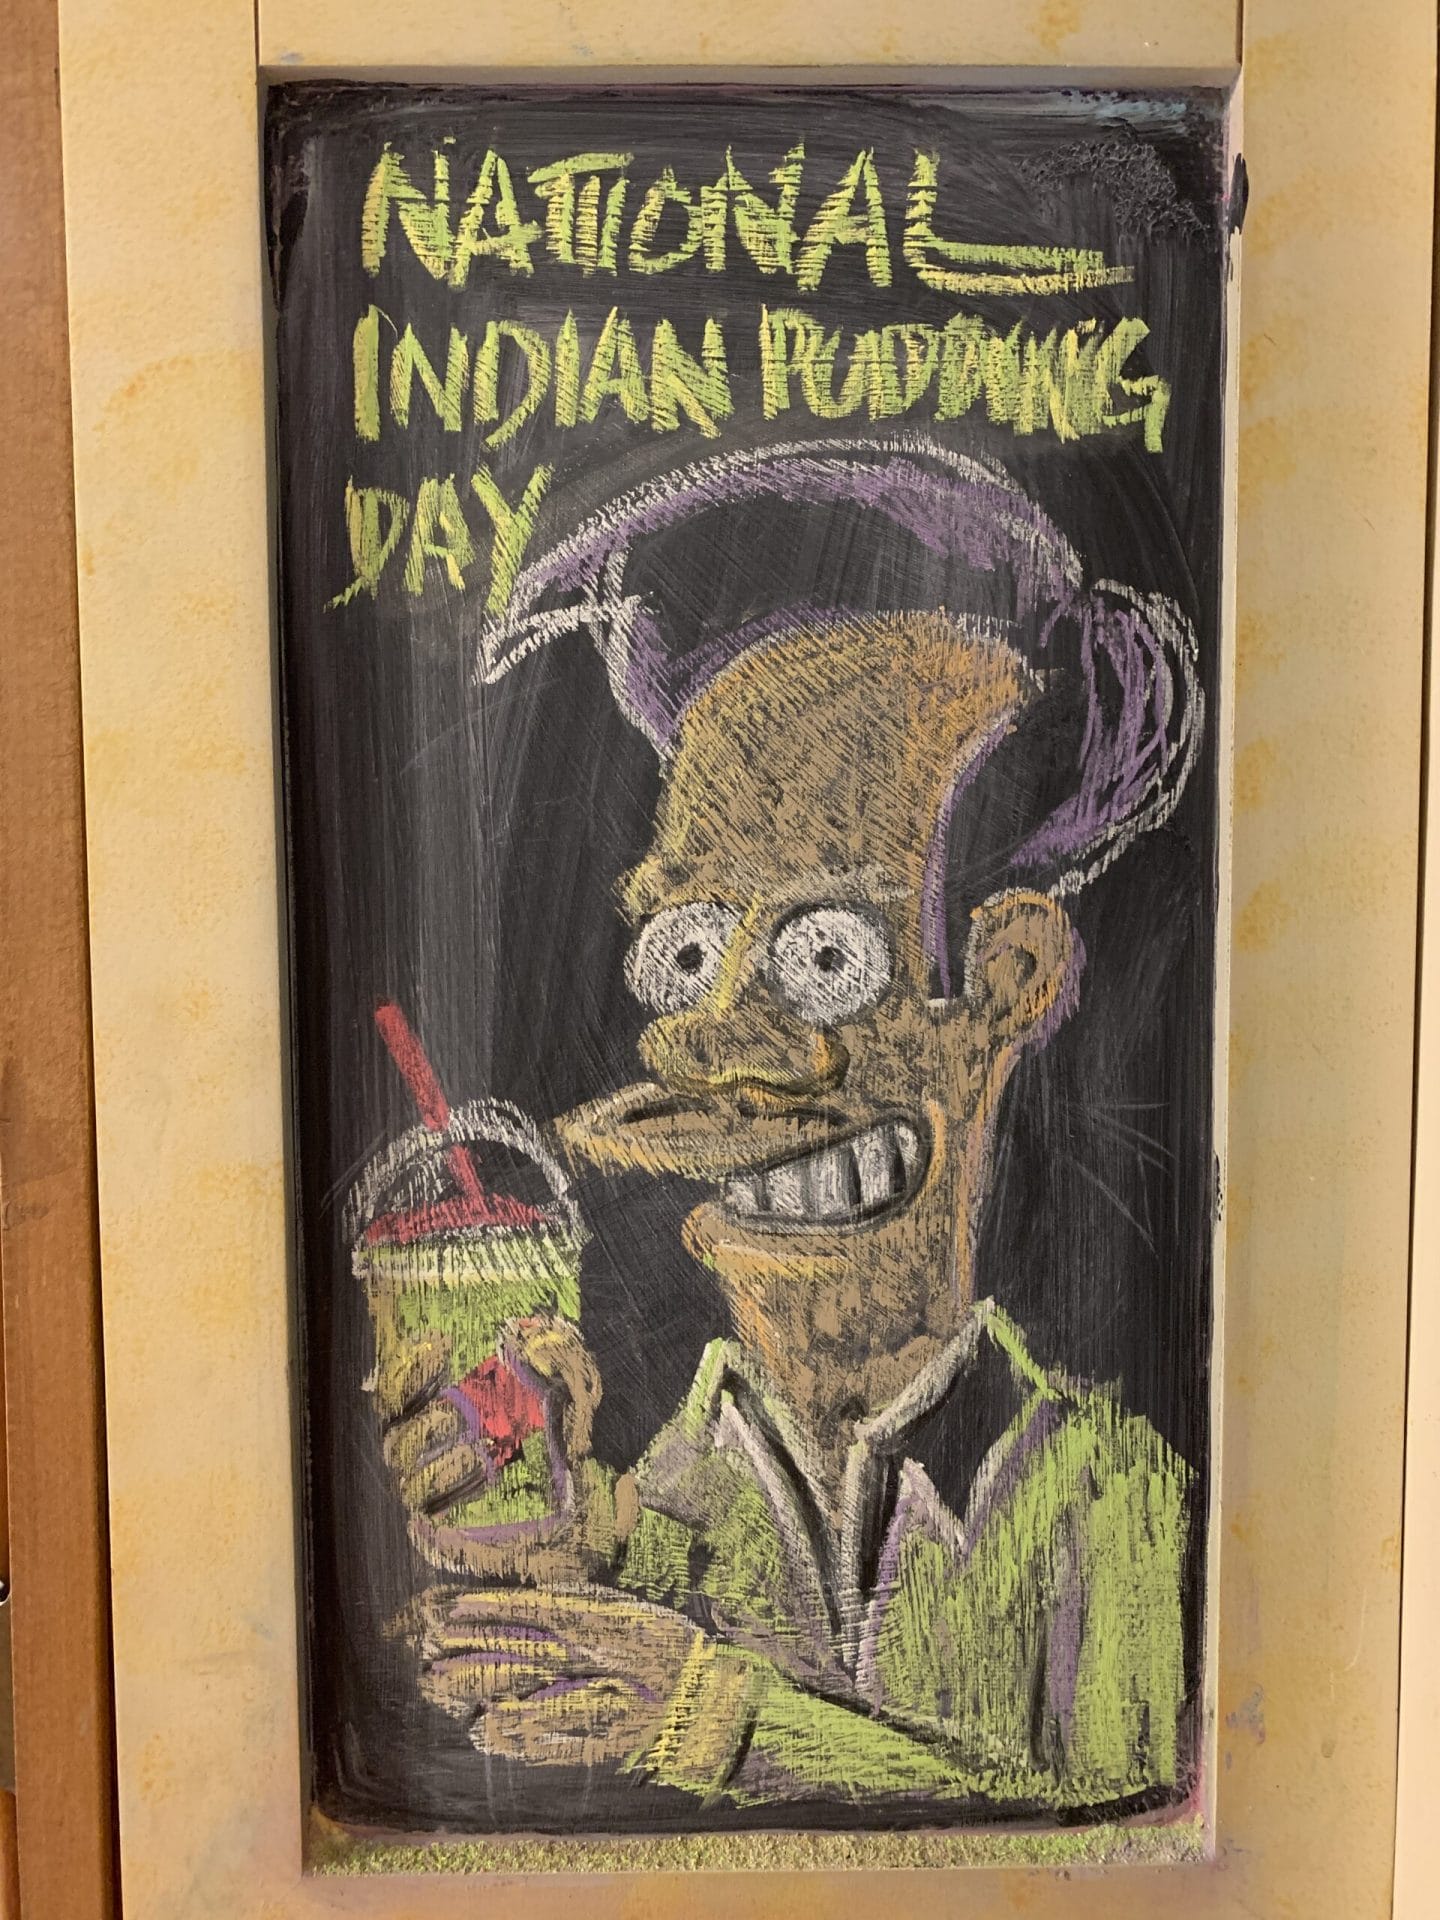 NATIONAL
INDIAN PUDDING
DAY